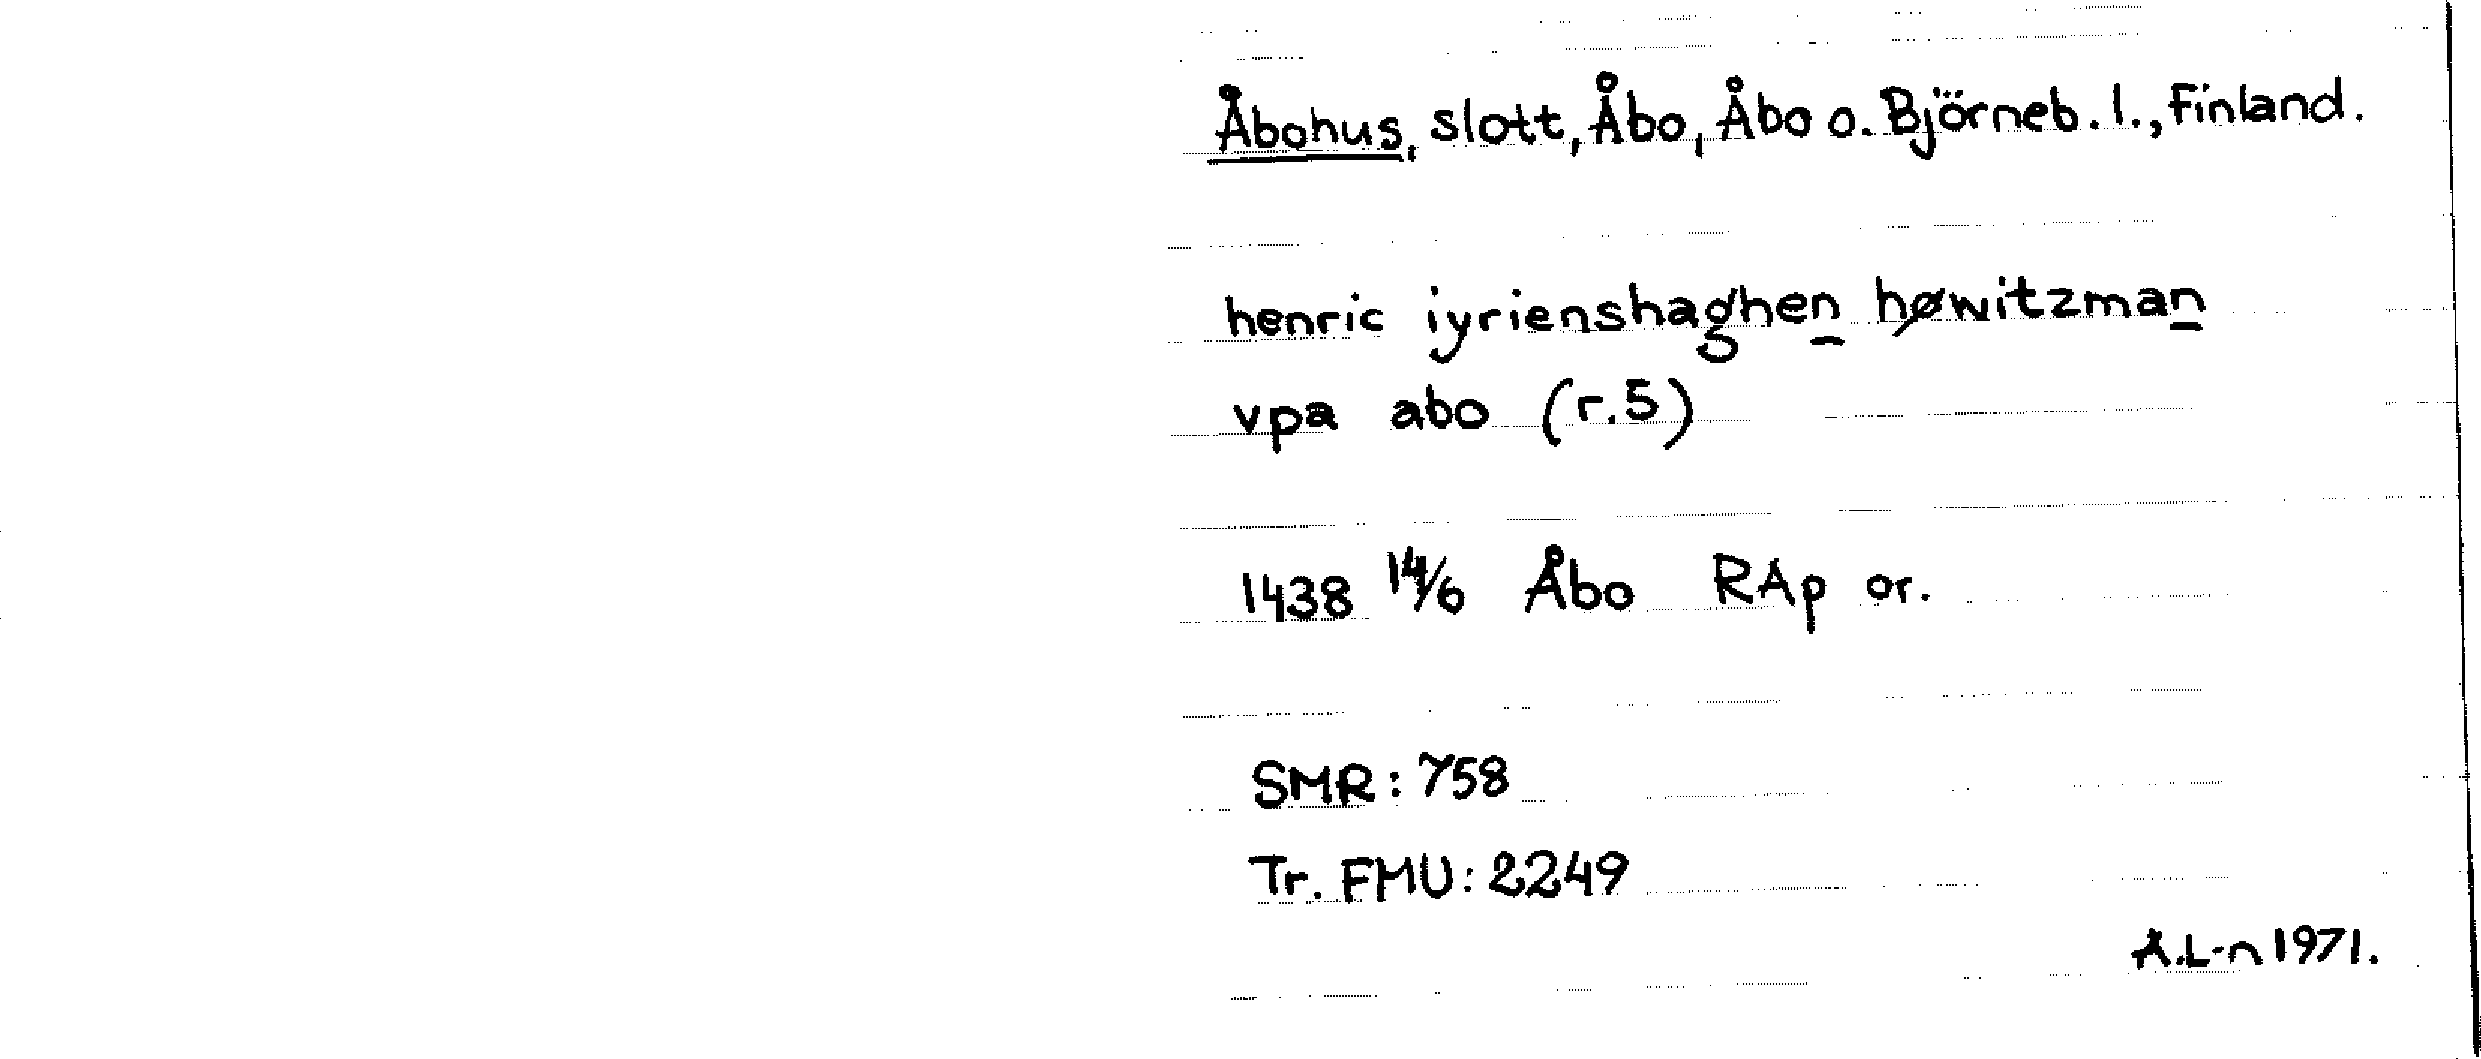 Åbohus, slott, Åbo, Åbo o. Björneb. l., Finland.
henric iyrienshaghen høwitzman
vpa abo (r.5)
1438 14/6 Åbo RAp or.
SMR: 758
Tr. FMU: 2249
A.L-n 1971.